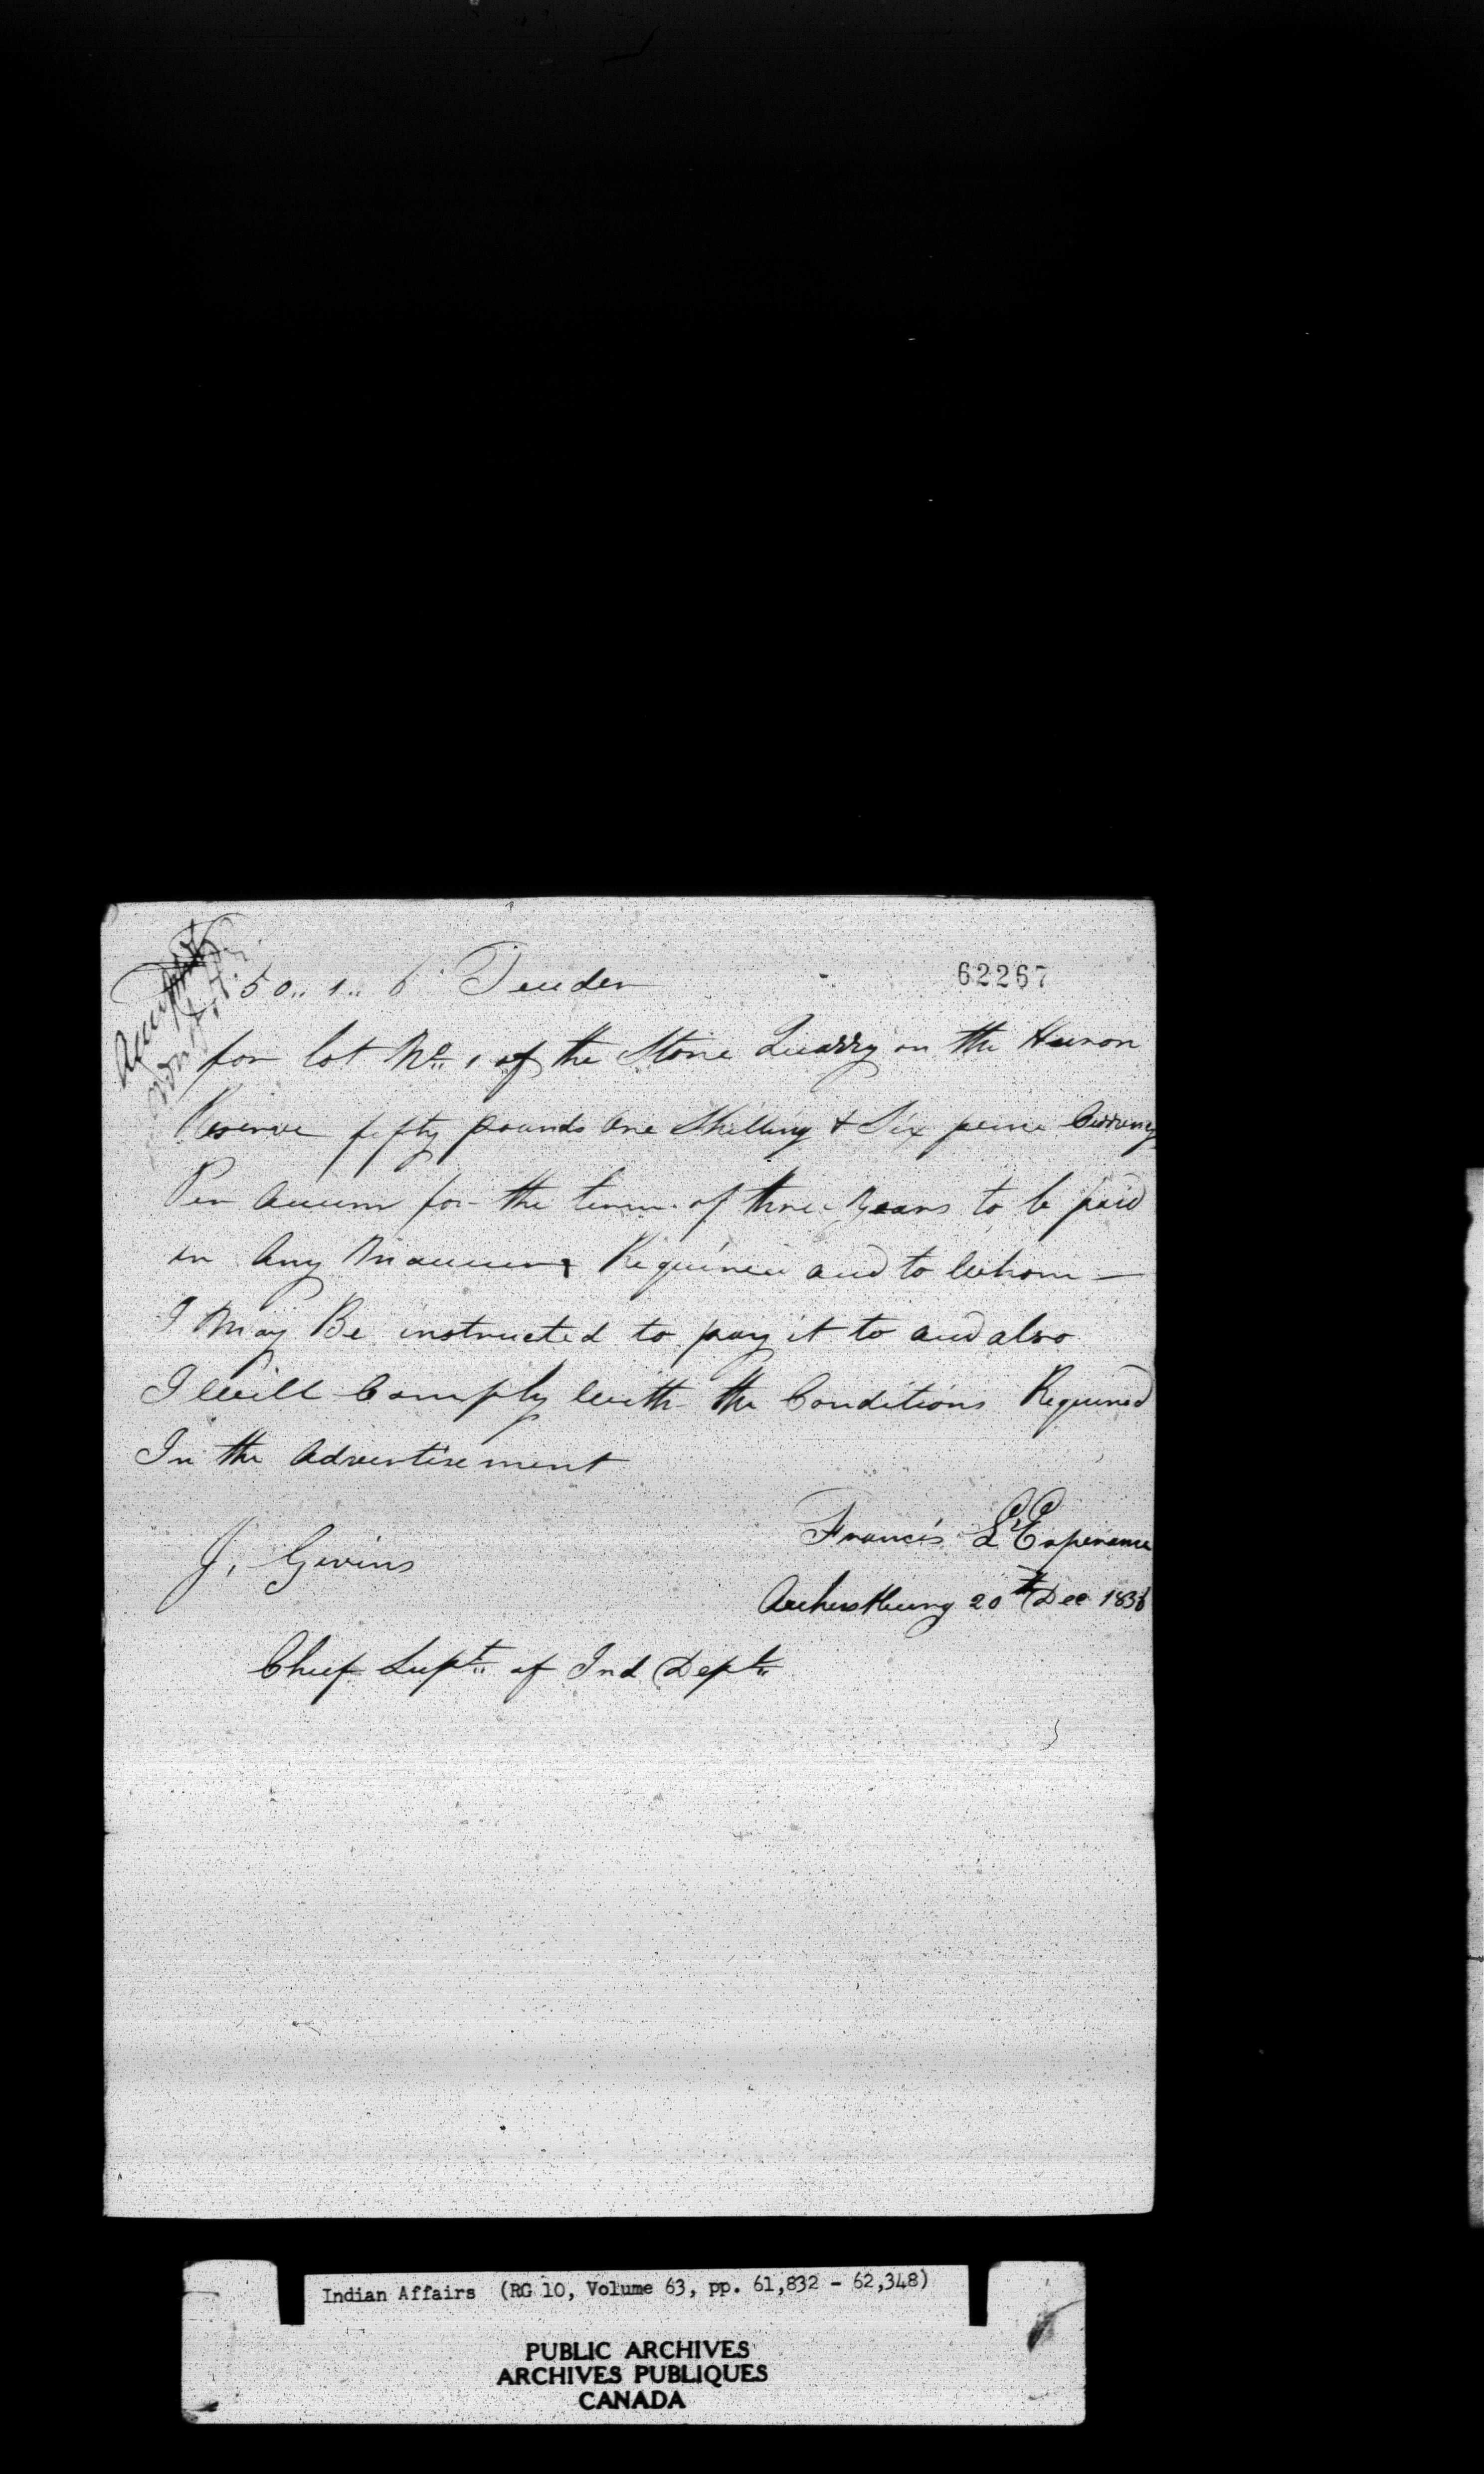 62267
50.. 1.. 6 Tender
for lot No. 1 of the Stone Quarry on the Huron
Reserve fifty pounds One Shilling & Six pence Currency
Per Annum for the term of three Years to be paid
in Any Manner Required and to Whom —
I May Be instructed to pay it to and also
I Will Comply With the Conditions Required
In the Advertisement
Francis L'Esperance
J. Givins
Amherstburg 20th Dec 1836
Chief Supt. of Ind Dept.
Indian Affairs (RG 10, Volume 63, pp. 61,832 - 62,348)
PUBLIC ARCHIVES
ARCHIVES PUBLIQUES
CANADA